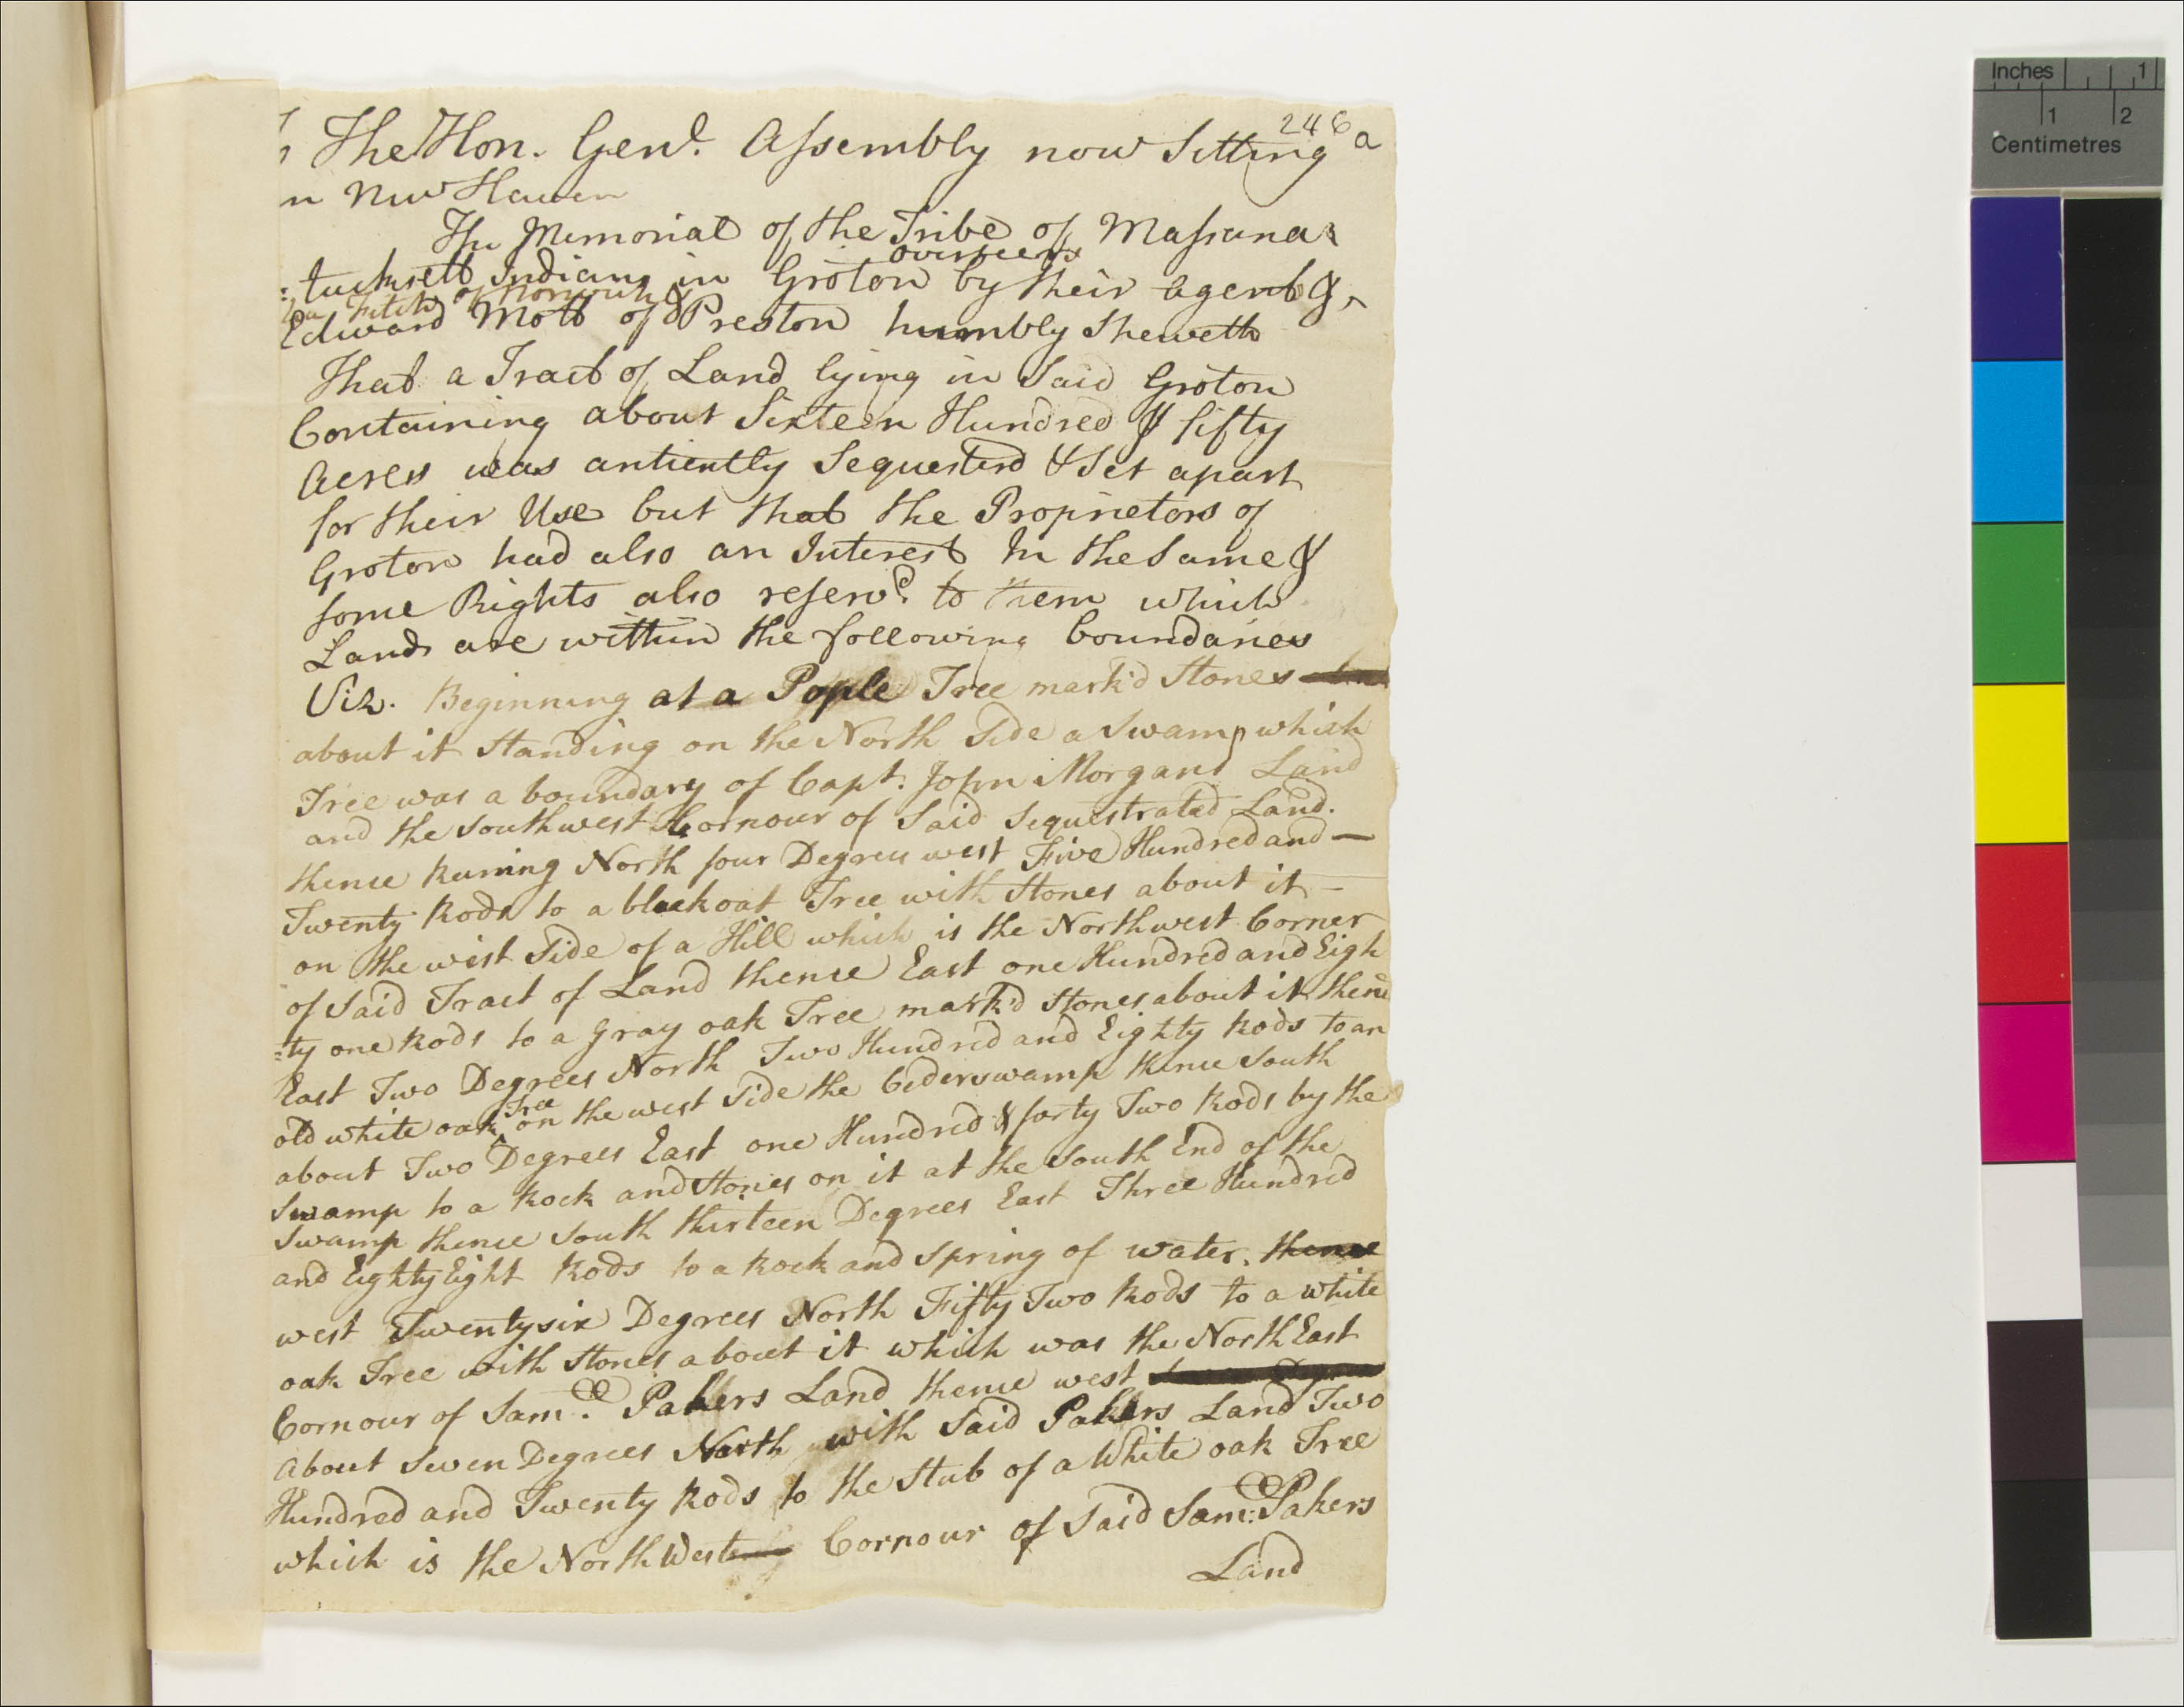 246 a
The Hon. Genl. Assembly now Sitting
n New Haven
The Memorial of the Tribe of Massana:
overseers
:tucksett Indians in Groton by their agent &
Fitch of Norwich &
Edward Mott of Preston humbly Sheweth
That a Tract of Land lying in Said Groton
Containing about Sixteen Hundred & fifty
Acres was antiently Sequesterd & Set apart
for their Use but that the Proprietors of
Groton had also an Interest In the Same &
some Rights also reserv'd. to them which
Lands are within the following boundaries
Viz. Beginning at a Pople Tree mark'd Stones
about it Standing on the North Side a Swamp which
Tree was a boundary of Capt. John Morgans Land
and the Southwest Cornour of Said Sequestrated Land.
thence Runing North four Degrees west Five Hundred and —
Twenty Rods to a black oat Tree with Stones about it —
on the west Side of a Hill which is the Northwest Corner
of Said Tract of Land thence East one Hundred and Eigh
:ty one Rods to a gray oak Tree mark'd Stones about it thence
East Two Degrees North Two Hundred and Eighty Rods to an
Tree
old white oak ^ on the west Side the Cederswamp thence South
about Two Degrees East one Hundred & forty Two Rods by the
Swamp to a Rock and Stones on it at the South End of the
Swamp thence South thirteen Degrees East Three Hundred
and Eighty Eight Rods to a Rock and Spring of water. thence
west Twentysix Degrees North Fifty Two Rods to a white
oak Tree with Stones about it which was the North East
Cornour of Saml. Pakers Land thence west
About Seven Degrees North with Said Pakers Land Two
Hundred and Twenty Rods to the Stub of a White oak Tree
which is the North West Cornour of Said Saml: Pakers
Land
Inches 1
1 2
Centimetres